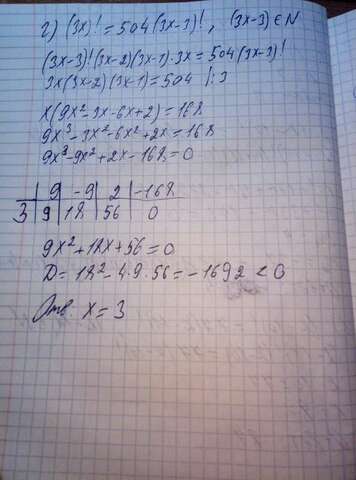 г) (3x)! = 504(3x-3)! , (3x-3) ∈ N
(3x-3)!(3x-2)(3x-1)·3x = 504(3x-3)!
3x(3x-2)(3x-1) = 504 |:3
x(9x²-3x-6x+2) = 168
9x³-3x²-6x²+2x = 168
9x³-9x²+2x-168 = 0
9 -9 2 -168
3 9 18 56 0
9x²+18x+56 = 0
D = 18²-4·9·56 = -1692 < 0
Отв. x = 3